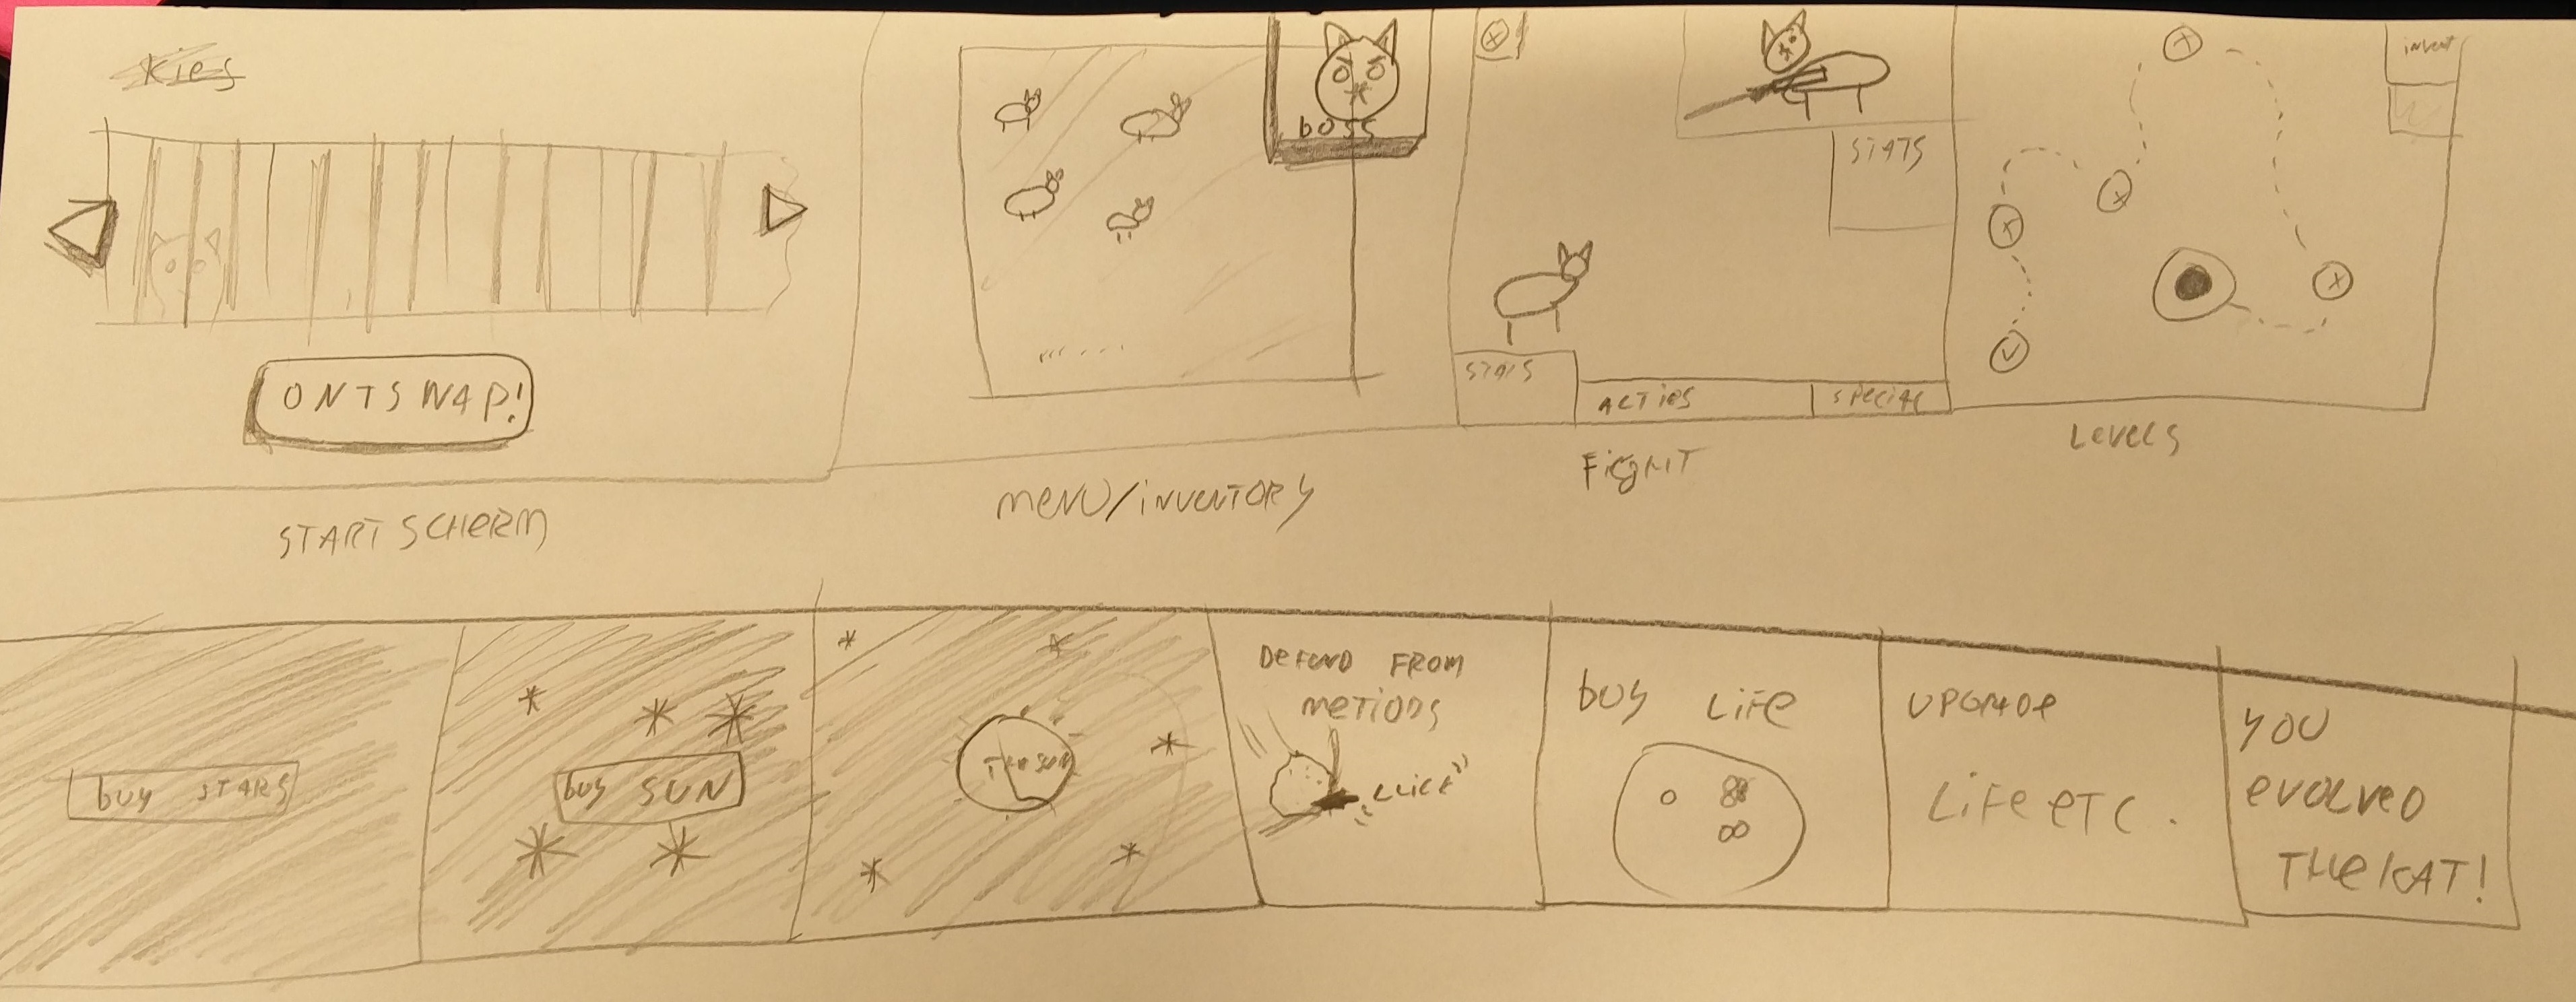 Kies
ONTSNAP!
STARTSCHERM
boss
MENU/INVENTORY
STATS
STATS
ACTIES
SPECIAL
FIGHT
invent
LEVELS
buy STARS
buy SUN
THE SUN
DEFEND FROM
METIODS
CLICK
buy LIFE
UPGRADE
LIFE ETC.
YOU
EVOLVED
THE KAT!